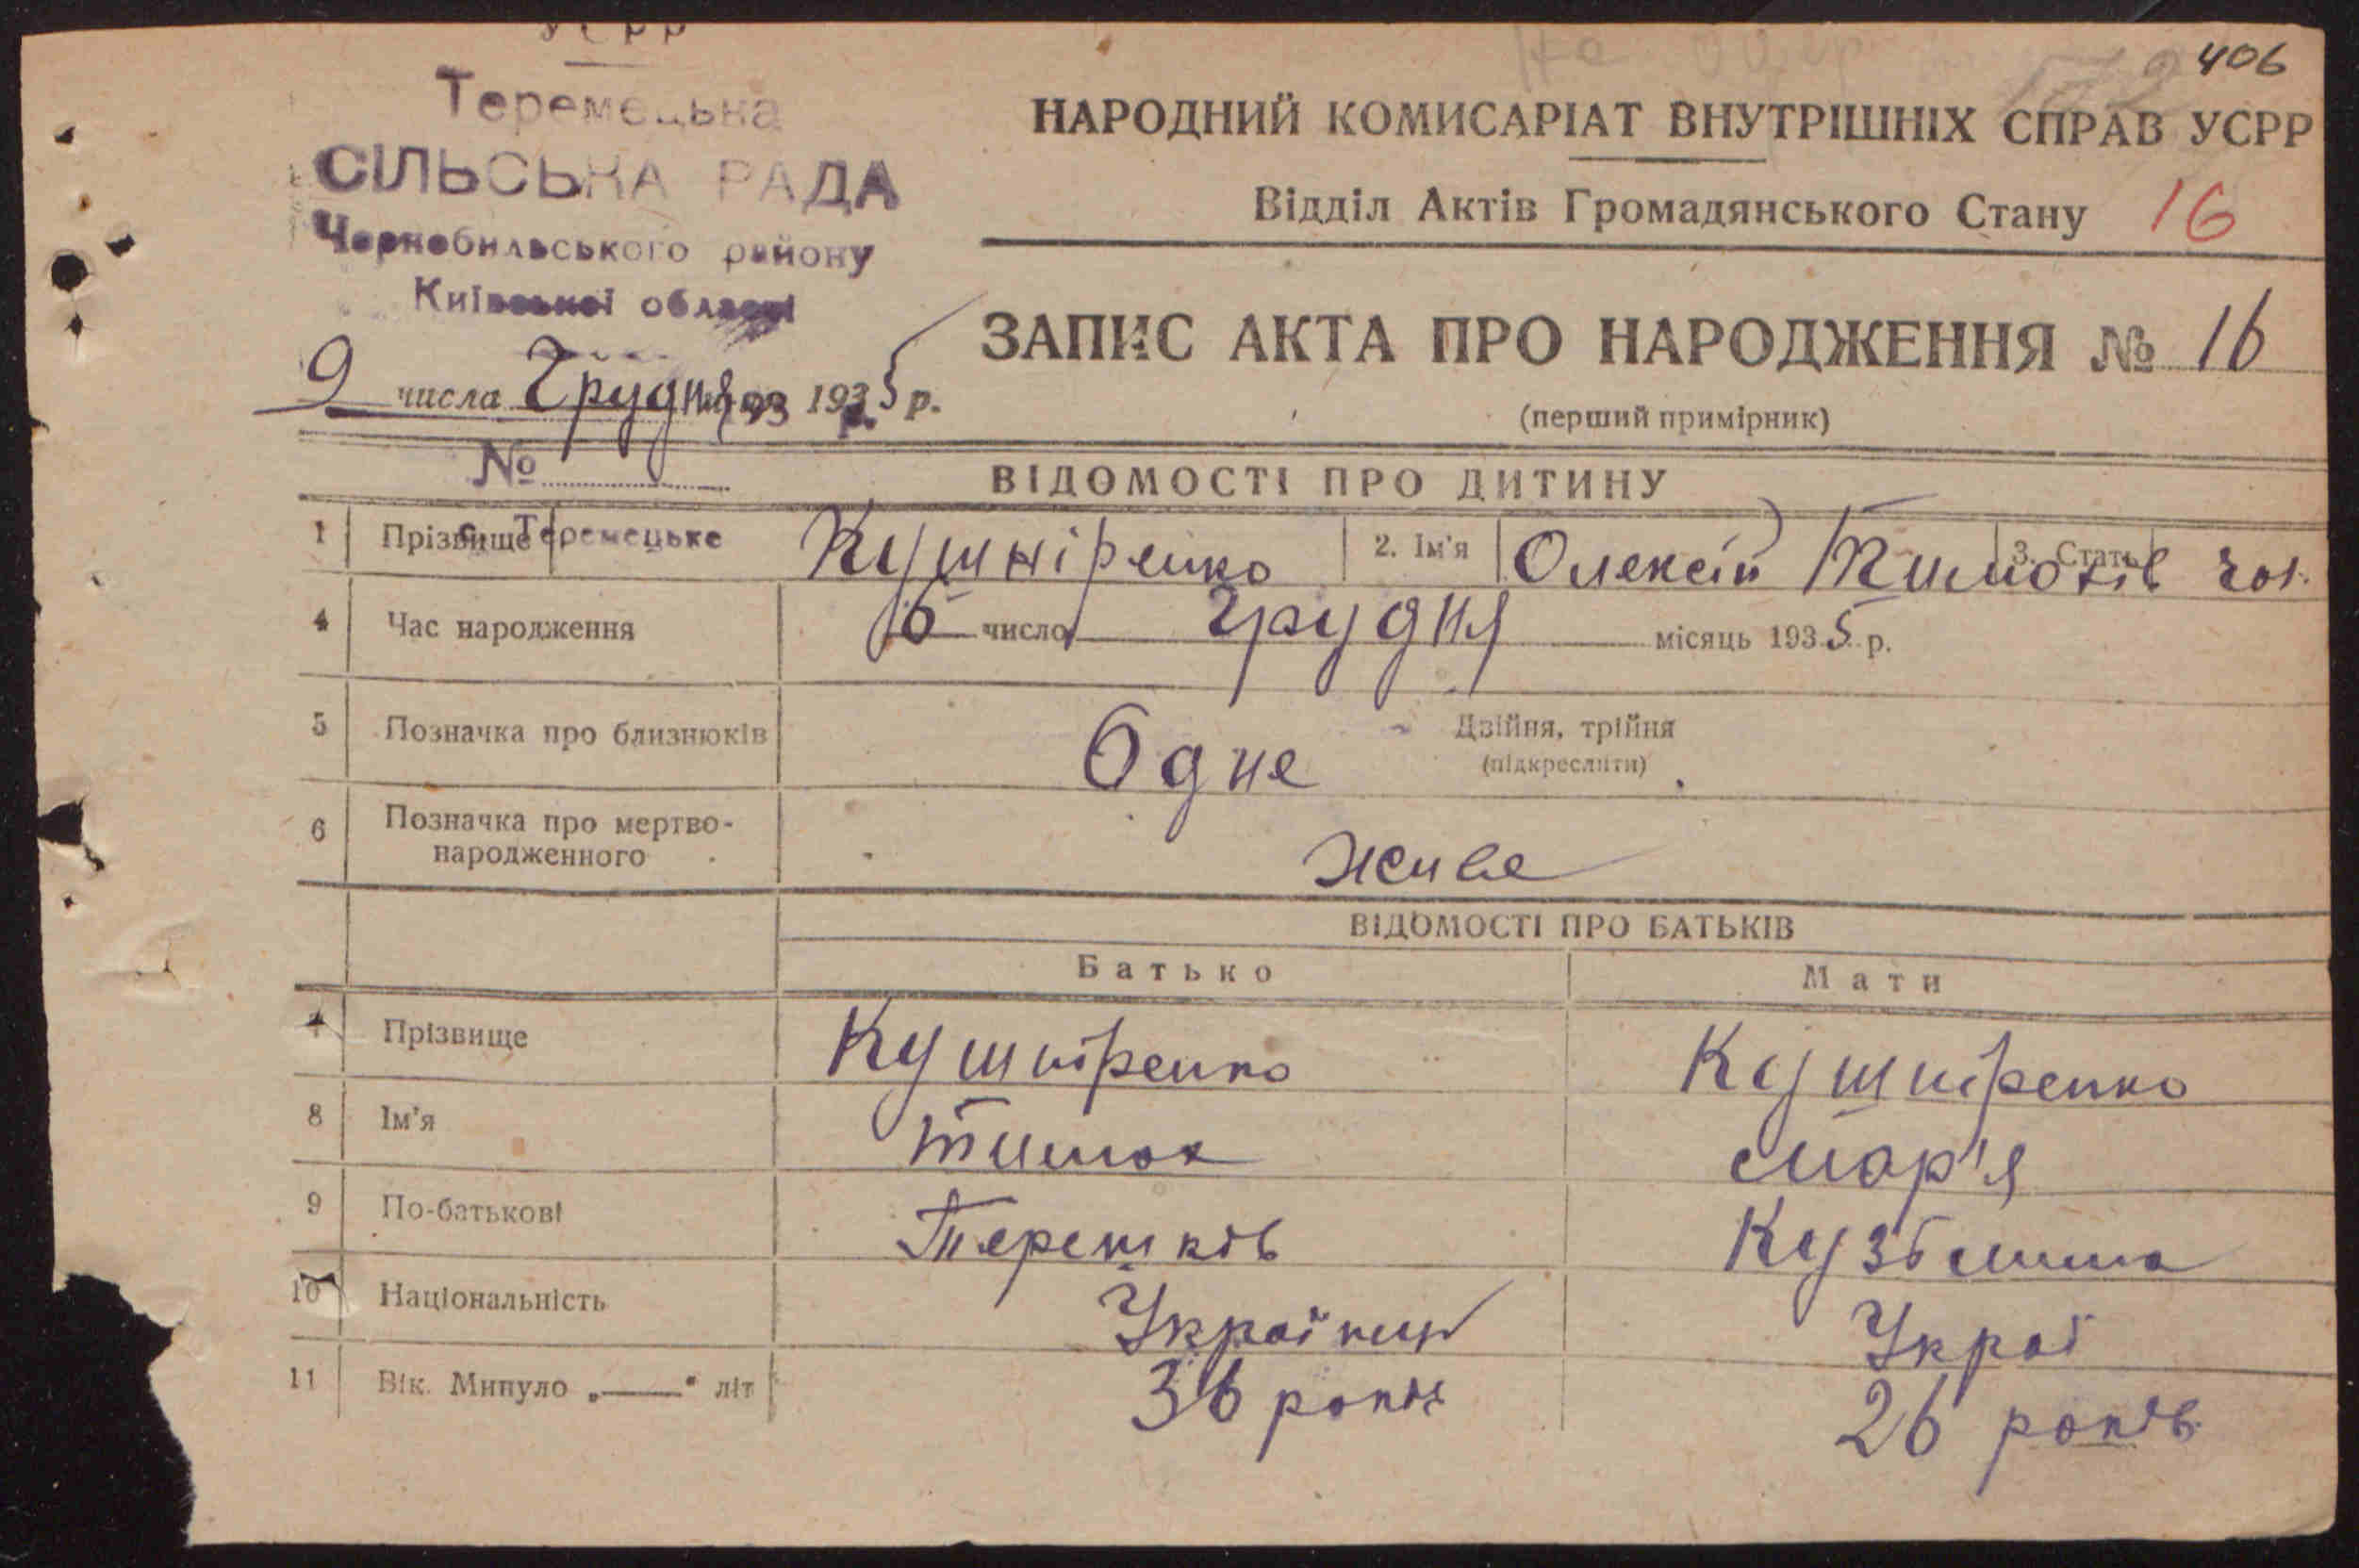 УСРР
406
Теремецька
НАРОДНИЙ КОМИСАРІАТ ВНУТРІШНІХ СПРАВ УСРР
СІЛЬСЬКА РАДА
Відділ Актів Громадянського Стану 16
Чорнобильського району
Київської області
ЗАПИС АКТА ПРО НАРОДЖЕННЯ № 16
9 числа Грудня 1935 р.
(перший примірник)
№
ВІДОМОСТІ ПРО ДИТИНУ
с. Теремецьке
1 Прізвище Кушніренко 2. Ім'я Олексій Тимохів 3. Стать чол.
4 Час народження 6 число грудня місяць 1935 р.
5 Позначка про близнюків Одне Двійня, трійня
(підкреслити)
6 Позначка про мертво-
народженного Живе
ВІДОМОСТІ ПРО БАТЬКІВ
Батько Мати
7 Прізвище Кушніренко Кушніренко
8 Ім'я Тимох Мар'я
9 По-батькові Терешків Кузьмина
10 Національність Українець Украї
11 Вік. Минуло „—“ літ 36 років 26 років